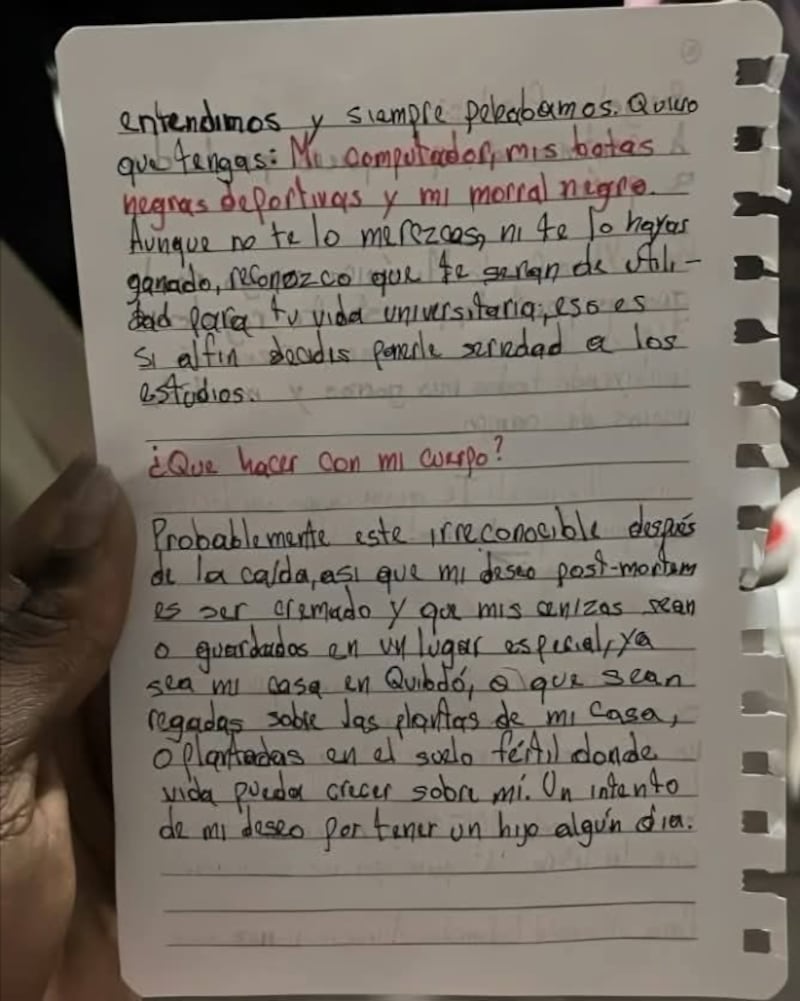 entendimos y siempre peleabamos. Quiero
que tengas: Mi computador, mis botas
negras deportivas y mi morral negro.
Aunque no te lo merezcas, ni te lo hayas
ganado, reconozco que te seran de utili-
dad para tu vida universitaria, eso es
si alfin decidis ponerle seriedad a los
estudios.
¿Que hacer con mi cuerpo?
Probablemente este irreconocible después
de la caída, asi que mi deseo post-mortem
es ser cremado y que mis cenizas sean
o guardadas en un lugar especial, ya
sea mi casa en Quibdó, o que sean
regadas sobre las plantas de mi casa,
o plantadas en el suelo fértil donde
vida pueda crecer sobre mí. Un intento
de mi deseo por tener un hijo algún día.